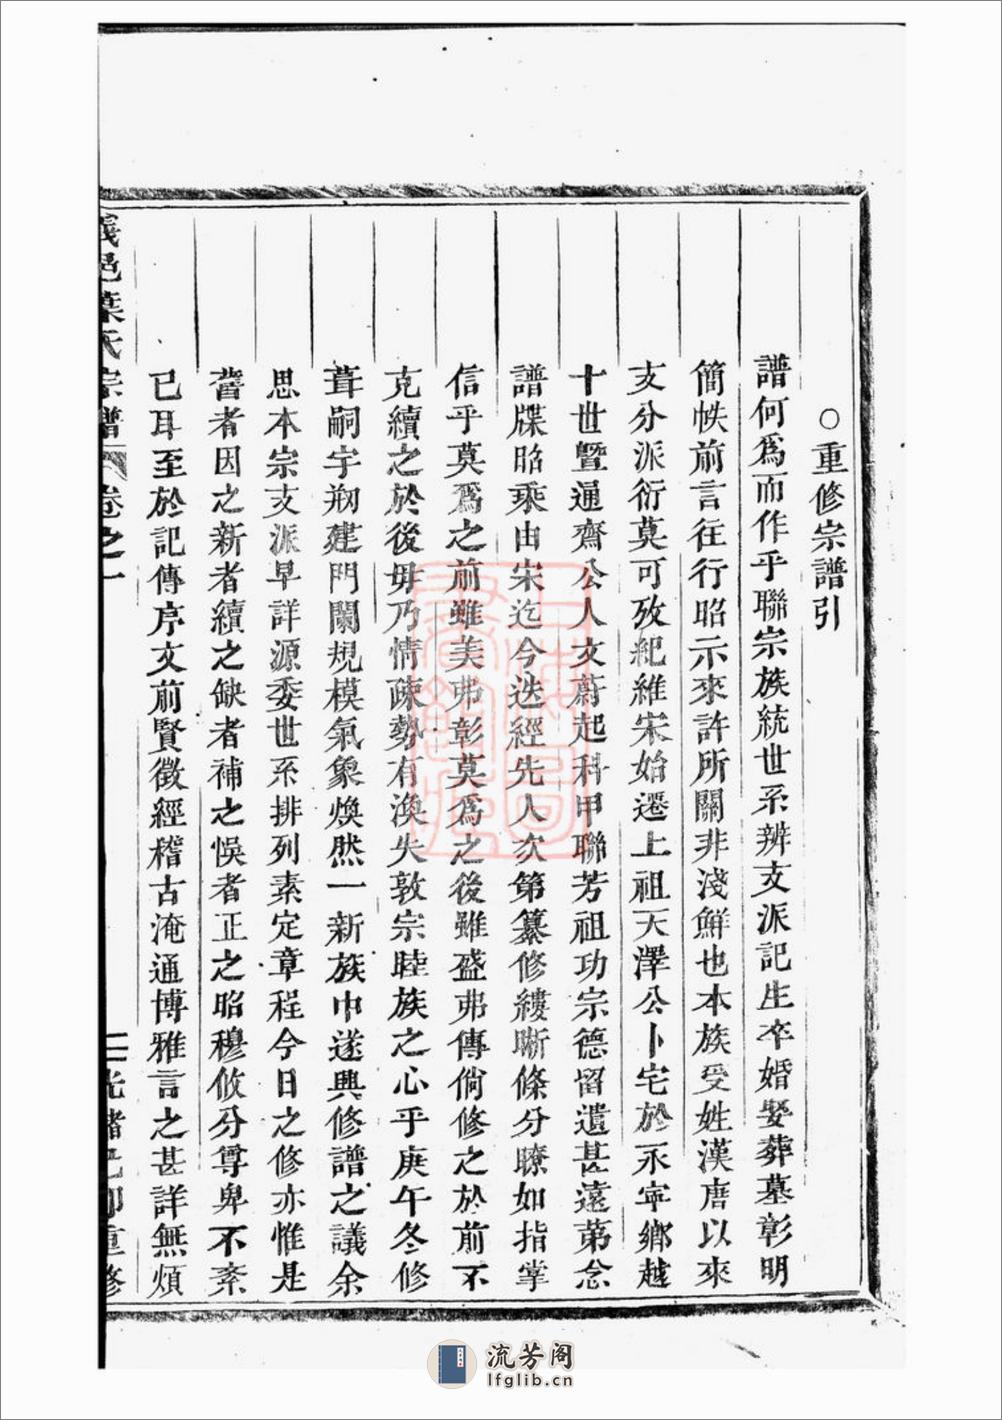 ○重修宗譜引
譜何爲而作乎聯宗族統世系辨支派記生卒婚娶葬墓彰明
簡帙前言往行昭示來許所關非淺鮮也本族受姓漢唐以來
支分派衍莫可攷紀維宋始遷上祖天澤公卜宅於永寧鄉越
十世暨通齋公人文蔚起科甲聯芳祖功宗德留遺甚遠第念
譜牒昭乘由宋迄今迭經先人次第纂修縷晰條分瞭如指掌
信乎莫爲之前雖美弗彰莫爲之後雖盛弗傳倘修之於前不
克續之於後毋乃情疎勢有渙失敦宗睦族之心乎庚午冬修
葺嗣宇剏建門闌規模氣象煥然一新族中遂興修譜之議余
思本宗支派早詳源委世系排列素定章程今日之修亦惟是
舊者因之新者續之缺者補之悞者正之昭穆攸分尊卑不紊
已耳至於記傳序文前賢徵經稽古淹通博雅言之甚詳無煩
義邑葉氏宗譜 卷之一 二 光緒己卯重修
流芳阁
lfglib.cn